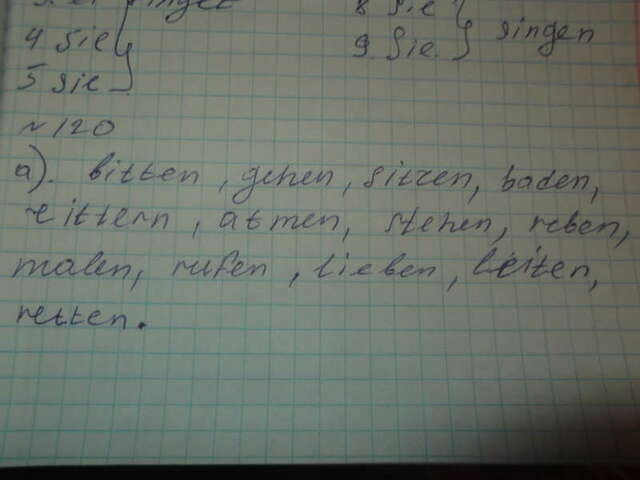 singet 8 Sie
4 Sie 9 Sie singen
5 sie
№ 120
a). bitten, gehen, sitzen, baden,
zittern, atmen, stehen, reben,
malen, rufen, lieben, leiten,
retten.